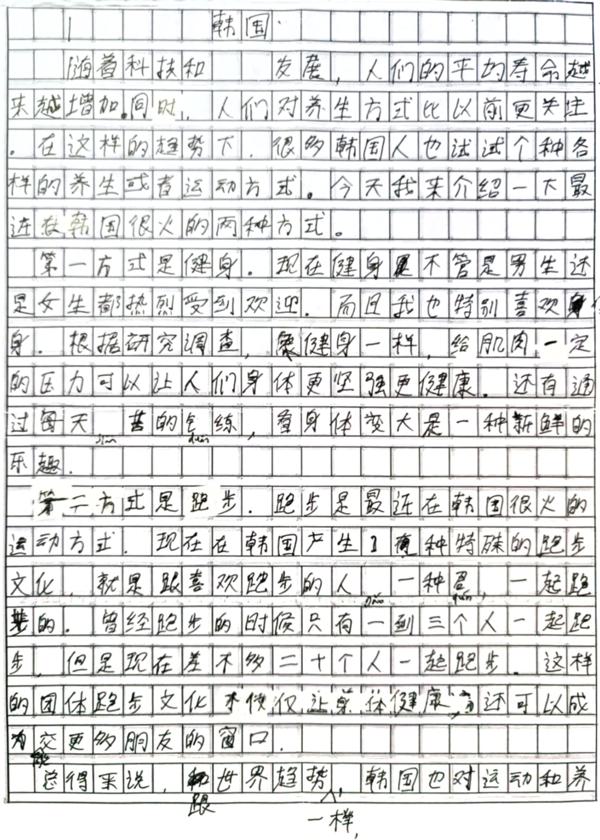 韩国
随着科技和 发展，人们的平均寿命越
来越增加。同时，人们对养生方式比以前更关注
。在这样的趋势下，很多韩国人也试试个种各
样的养生或者运动方式。今天我来介绍一下最
近在韩国很火的两种方式。
第一方式是健身。现在健身不管是男生还
是女生都热烈受到欢迎。而且我也特别喜欢
身。根据研究调查，健身一样，给肌肉一定
的压力可以让人们身体更坚强更健康。还有通
过每天 苦的 练，身体变大是一种新鲜的
乐趣。
第二方式是跑步。跑步是最近在韩国很火的
运动方式。现在在韩国产生了 种特殊的跑步
文化，就是跟喜欢跑步的人 一种 ，一起跑
步的。曾经跑步的时候只有一到三个人一起跑
步，但是现在差不多二十个人一起跑步。这样
的团体跑步文化 不仅仅让身体健康，还可以成
为交更多朋友的窗口。
总得来说，跟世界趋势一样，韩国也对运动和养